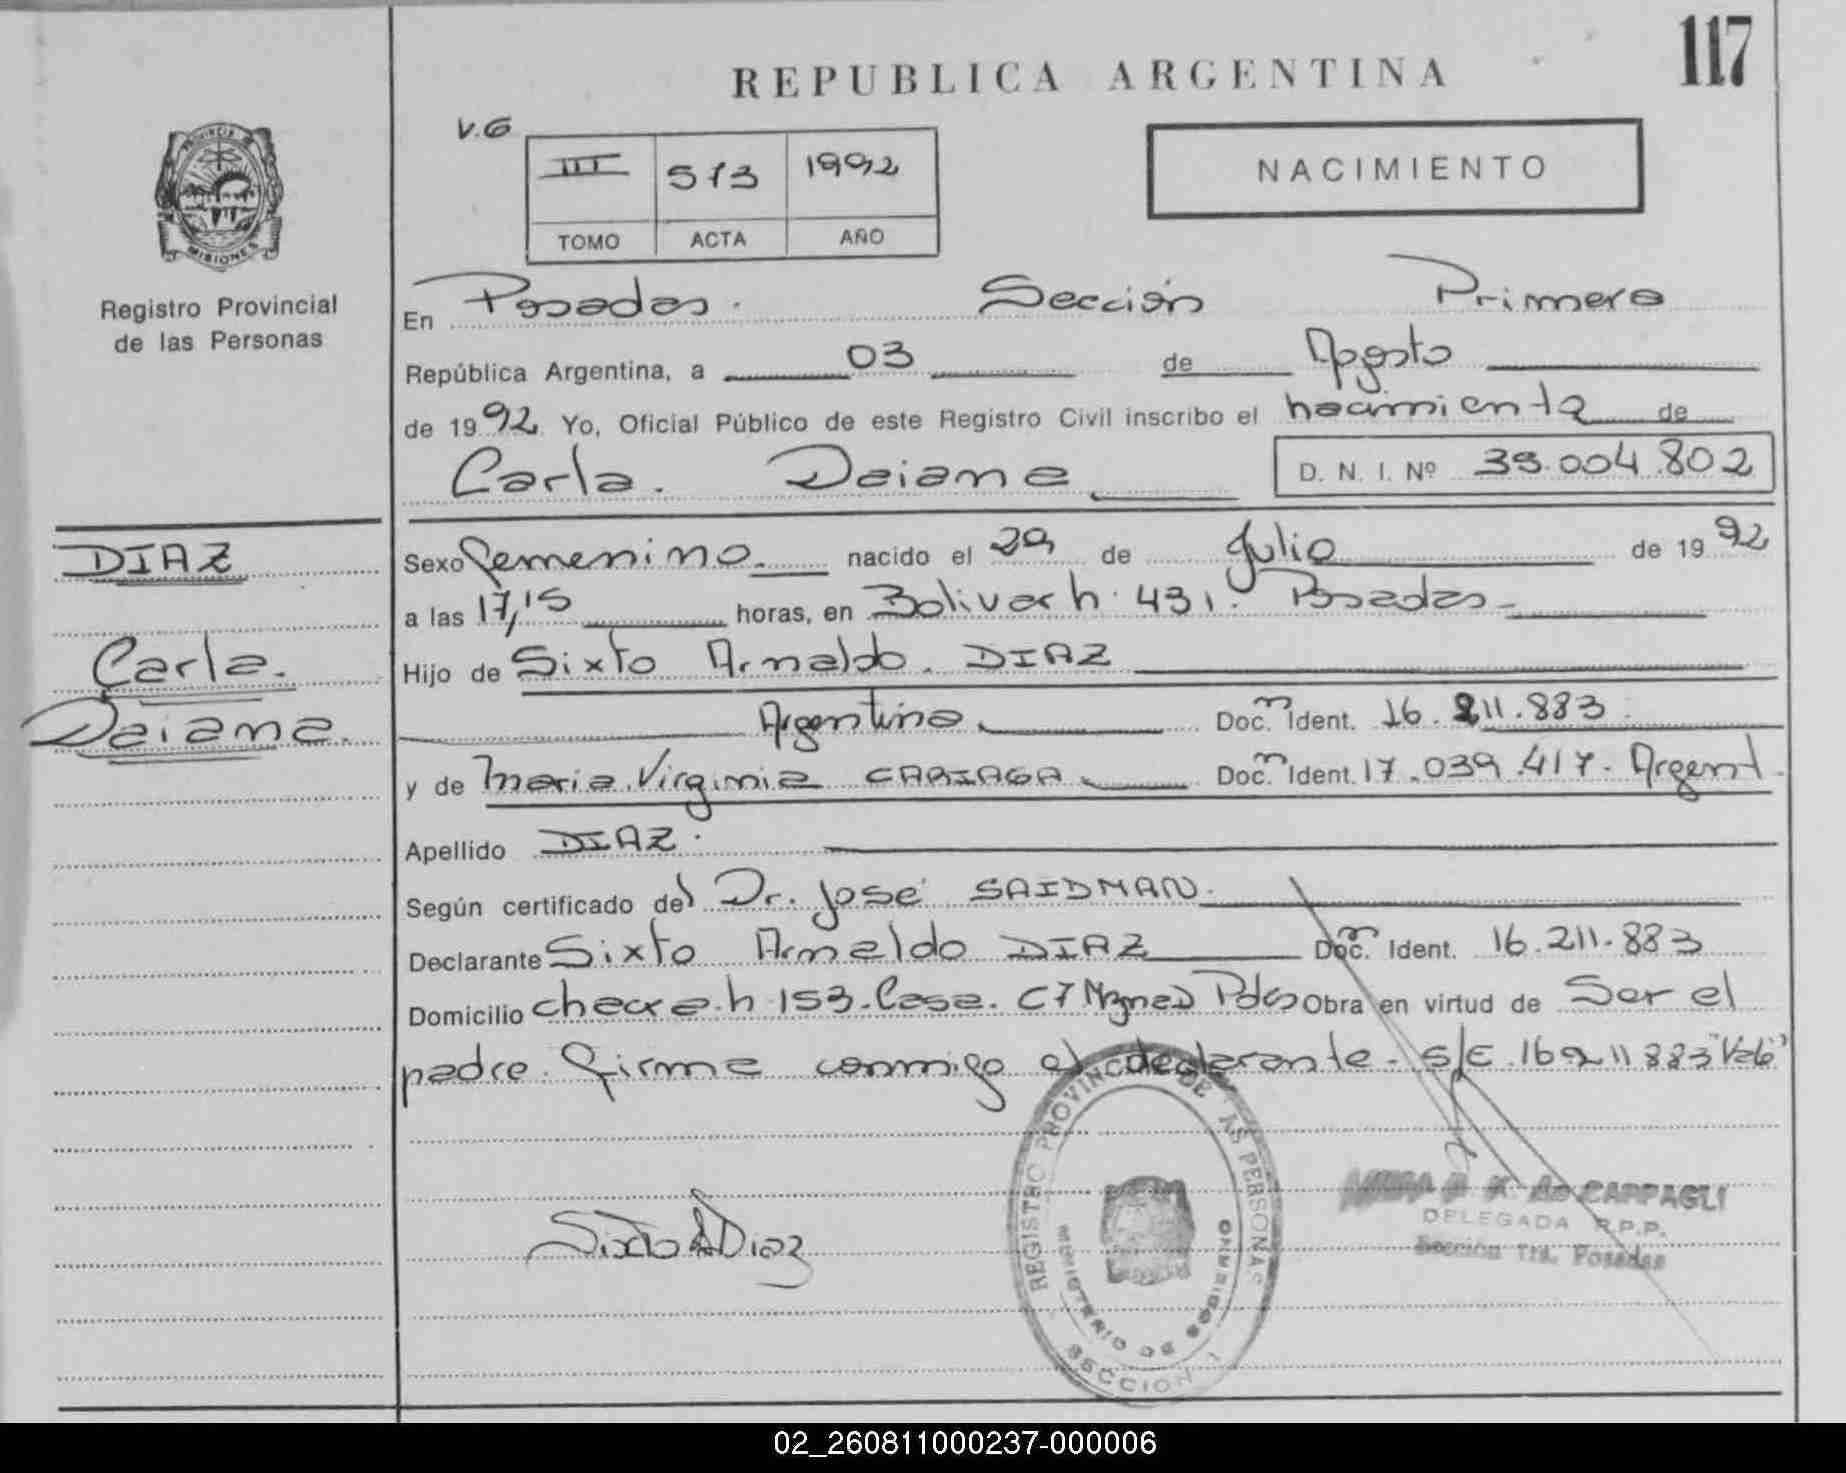 117
REPUBLICA ARGENTINA
V.G
III 513 1992
TOMO ACTA AÑO
NACIMIENTO
PROVINCIA DE
MISIONES
Registro Provincial
de las Personas
En Posadas. Sección Primera
República Argentina, a 03 de Agosto
de 1992 Yo, Oficial Público de este Registro Civil inscribo el nacimiento de
Carla. Daiana D. N. I. Nº 39.004.802
DIAZ
Carla.
Daiana.
Sexo femenino. nacido el 29 de Julio de 1992
a las 17,15 horas, en Bolivar h. 431. Posadas
Hijo de Sixto Arnaldo. DIAZ
Argentino Doc. Ident. 16.211.883
y de Maria Virginia CARIAGA Doc. Ident. 17.039.417. Argent.
Apellido DIAZ.
Según certificado del Dr. José SAIDMAN.
Declarante Sixto Arnaldo DIAZ Doc. Ident. 16.211.883
Domicilio chacra h 153. Casa. C7 Pdas Obra en virtud de Ser el
padre. firma conmigo el declarante - S/E. 16211883 "Vale"
Sixto A Diaz
REGISTRO PROVINCIAL DE LAS PERSONAS
MINISTERIO DE GOBIERNO
SECCION 1
de CARPAGLI
DELEGADA R.P.P.
Sección 1ra. Posadas
02_260811000237-000006